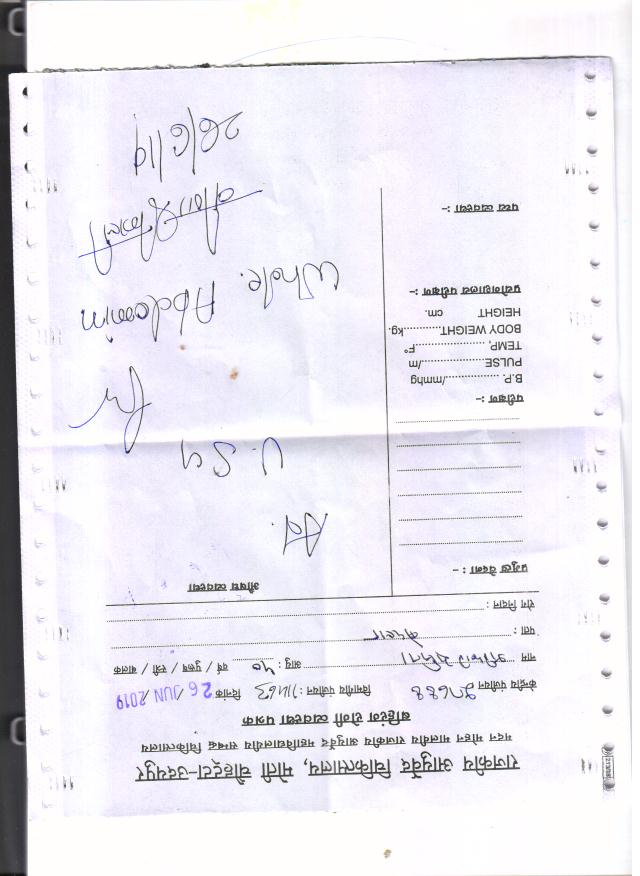 राजकीय आयुर्वेद चिकित्सालय, मोती चौहट्टा-उदयपुर
मदन मोहन मालवीय राजकीय आयुर्वेद महाविद्यालयीय सम्बद्ध चिकित्सालय
बहिरंग रोगी व्यवस्था पत्रक
केन्द्रीय पंजीयन विभागीय पंजीयन : 11463 दिनांक 26 JUN 2019
नाम आयु : 40 वर्ष / पुरुष / स्त्री / बालक
पता :
रोग निदान :
प्रमुख वेदना :-
औषध व्यवस्था
Adv.
U.S.G
for
Whole. Abdomin
26/6/19
परीक्षण :-
B.P. ................/mmhg
PULSE................/m
TEMP. ................F°
BODY WEIGHT..........kg.
HEIGHT cm.
प्रयोगशालय परीक्षण :-
पथ्य व्यवस्था :-